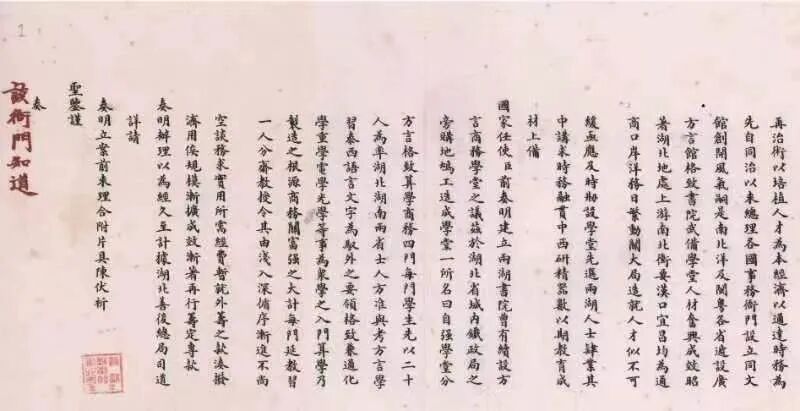 再治術以培植人才為本經濟以通達時務為
先自同治以來總理各國事務衙門設立同文
館創開風氣嗣是南北洋及閩粵各省遞設廣
方言館格致書院武備學堂人材奮興成效昭
著湖北地處上游南北衝要漢口宜昌均為通
商口岸洋務日繁動關大局造就人才似不可
緩亟應及時創設學堂先選兩湖人士肄業其
中講求時務融貫中西研精器數以期教育成
材上備
國家任使臣前奏明建立兩湖書院曾有續設方
言商務學堂之議茲於湖北省城內鐵政局之
旁購地鳩工造成學堂一所名曰自强學堂分
方言格致算學商務四門每門學生先以二十
人為率湖北湖南兩省士人方准與考方言學
習泰西語言文字為馭外之要領格致兼通化
學重學電學光學等事為衆學之入門算學乃
製造之根源商務關富强之大計每門延教習
一人分齋教授令其由淺入深循序漸進不尚
空談務求實用所需經費暫就外籌之款湊撥
濟用俟規模漸擴成效漸著再行籌定專款
奏明辦理以為經久至計據湖北善後總局司道
詳請
奏明立案前來理合附片具陳伏祈
聖鑒謹
奏
該衙門知道
1